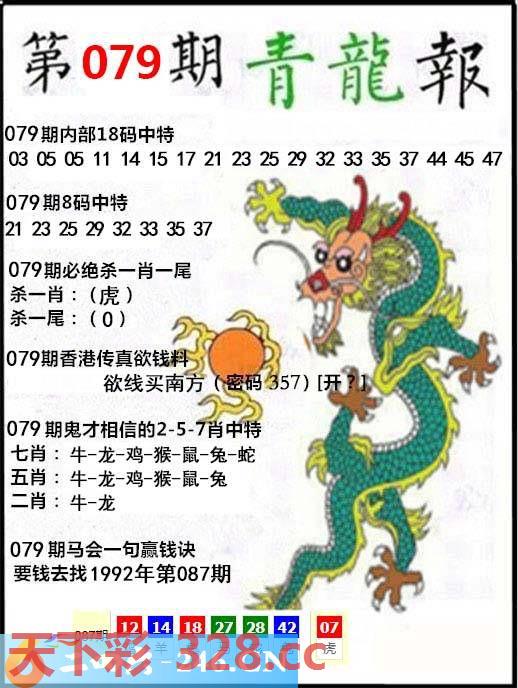 第079期青龍報
079期内部18码中特
03 05 05 11 14 15 17 21 23 25 29 32 33 35 37 44 45 47
079期8码中特
21 23 25 29 32 33 35 37
079期必绝杀一肖一尾
杀一肖：（虎）
杀一尾：（0）
079期香港传真欲钱料
欲线买南方（密码 357）[开？]
079期鬼才相信的2-5-7肖中特
七肖：牛-龙-鸡-猴-鼠-兔-蛇
五肖：牛-龙-鸡-猴-鼠-兔
二肖：牛-龙
079期马会一句赢钱诀
要钱去找1992年第087期
087期 12 14 18 27 28 42 07
羊 虎
天下彩 328.cc